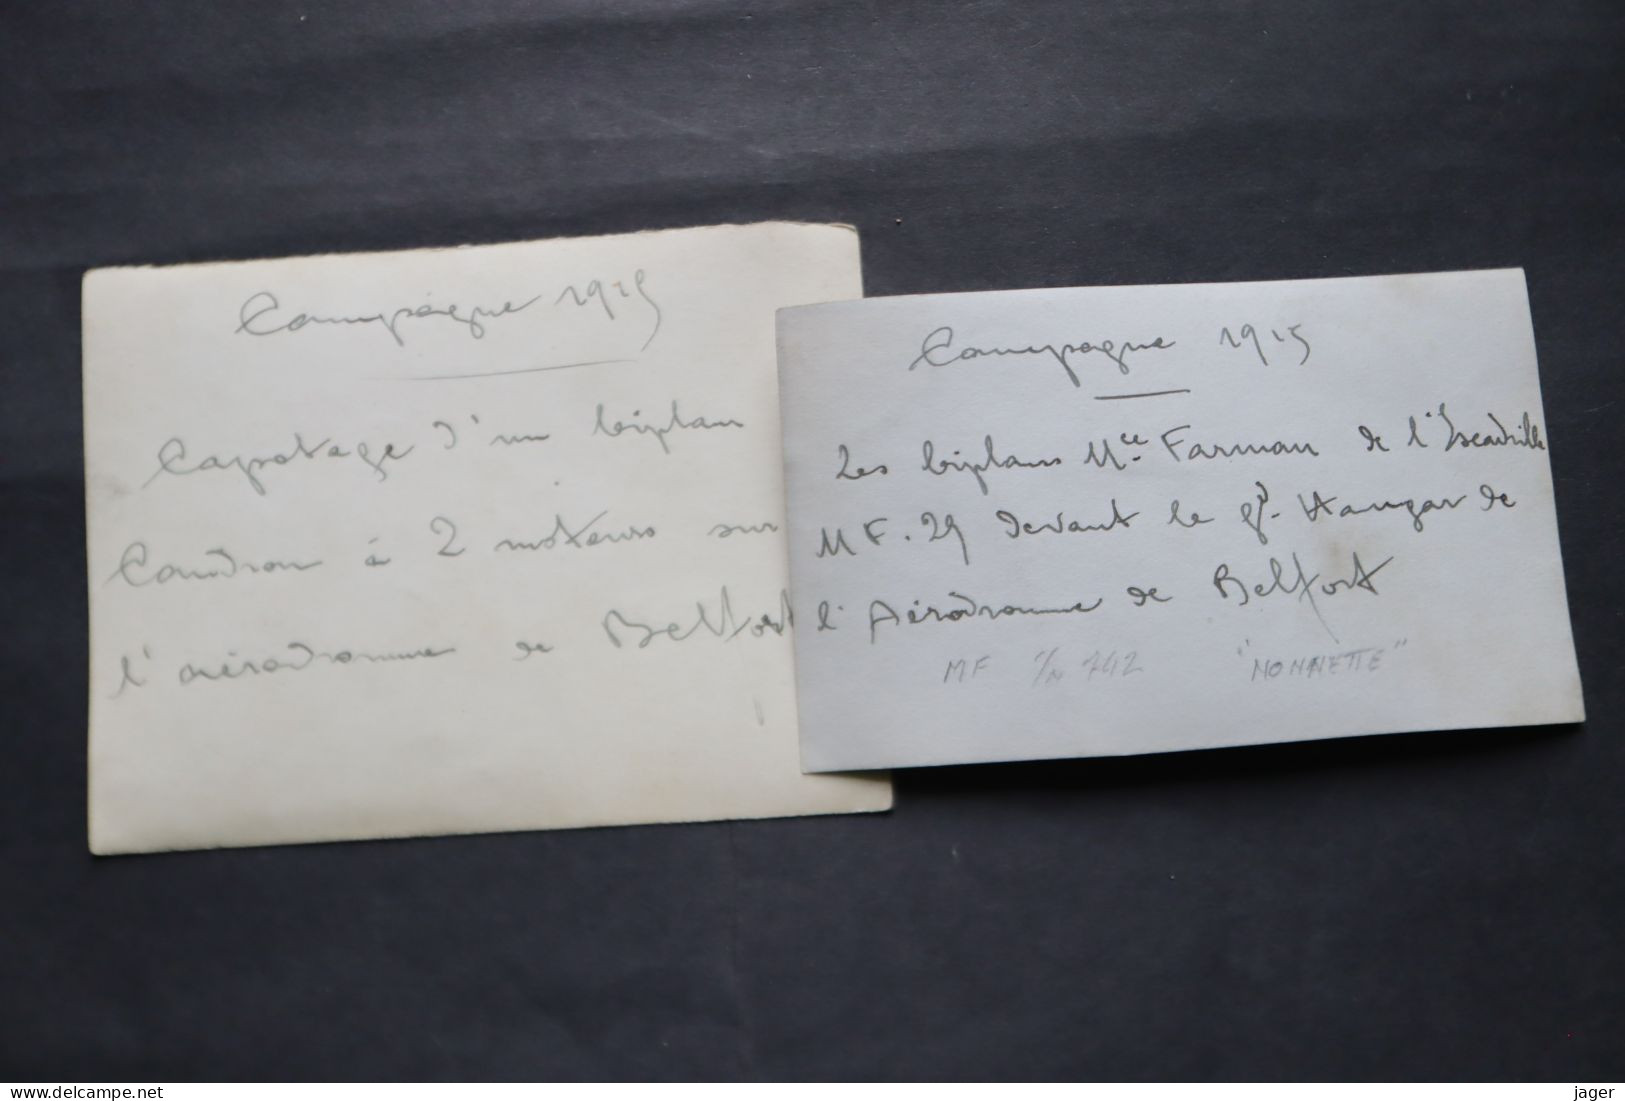 Campagne 1915
Capotage d'un biplan
Caudron à 2 moteurs sur
l'aérodromme de Belfort
Campagne 1915
Les biplans Mce. Farman de l'Escadrille
MF. 29 devant le gd. Hangar de
l'Aérodromme de Belfort
MF S/N 742 "NONNETTE"
www.delcampe.net
jager